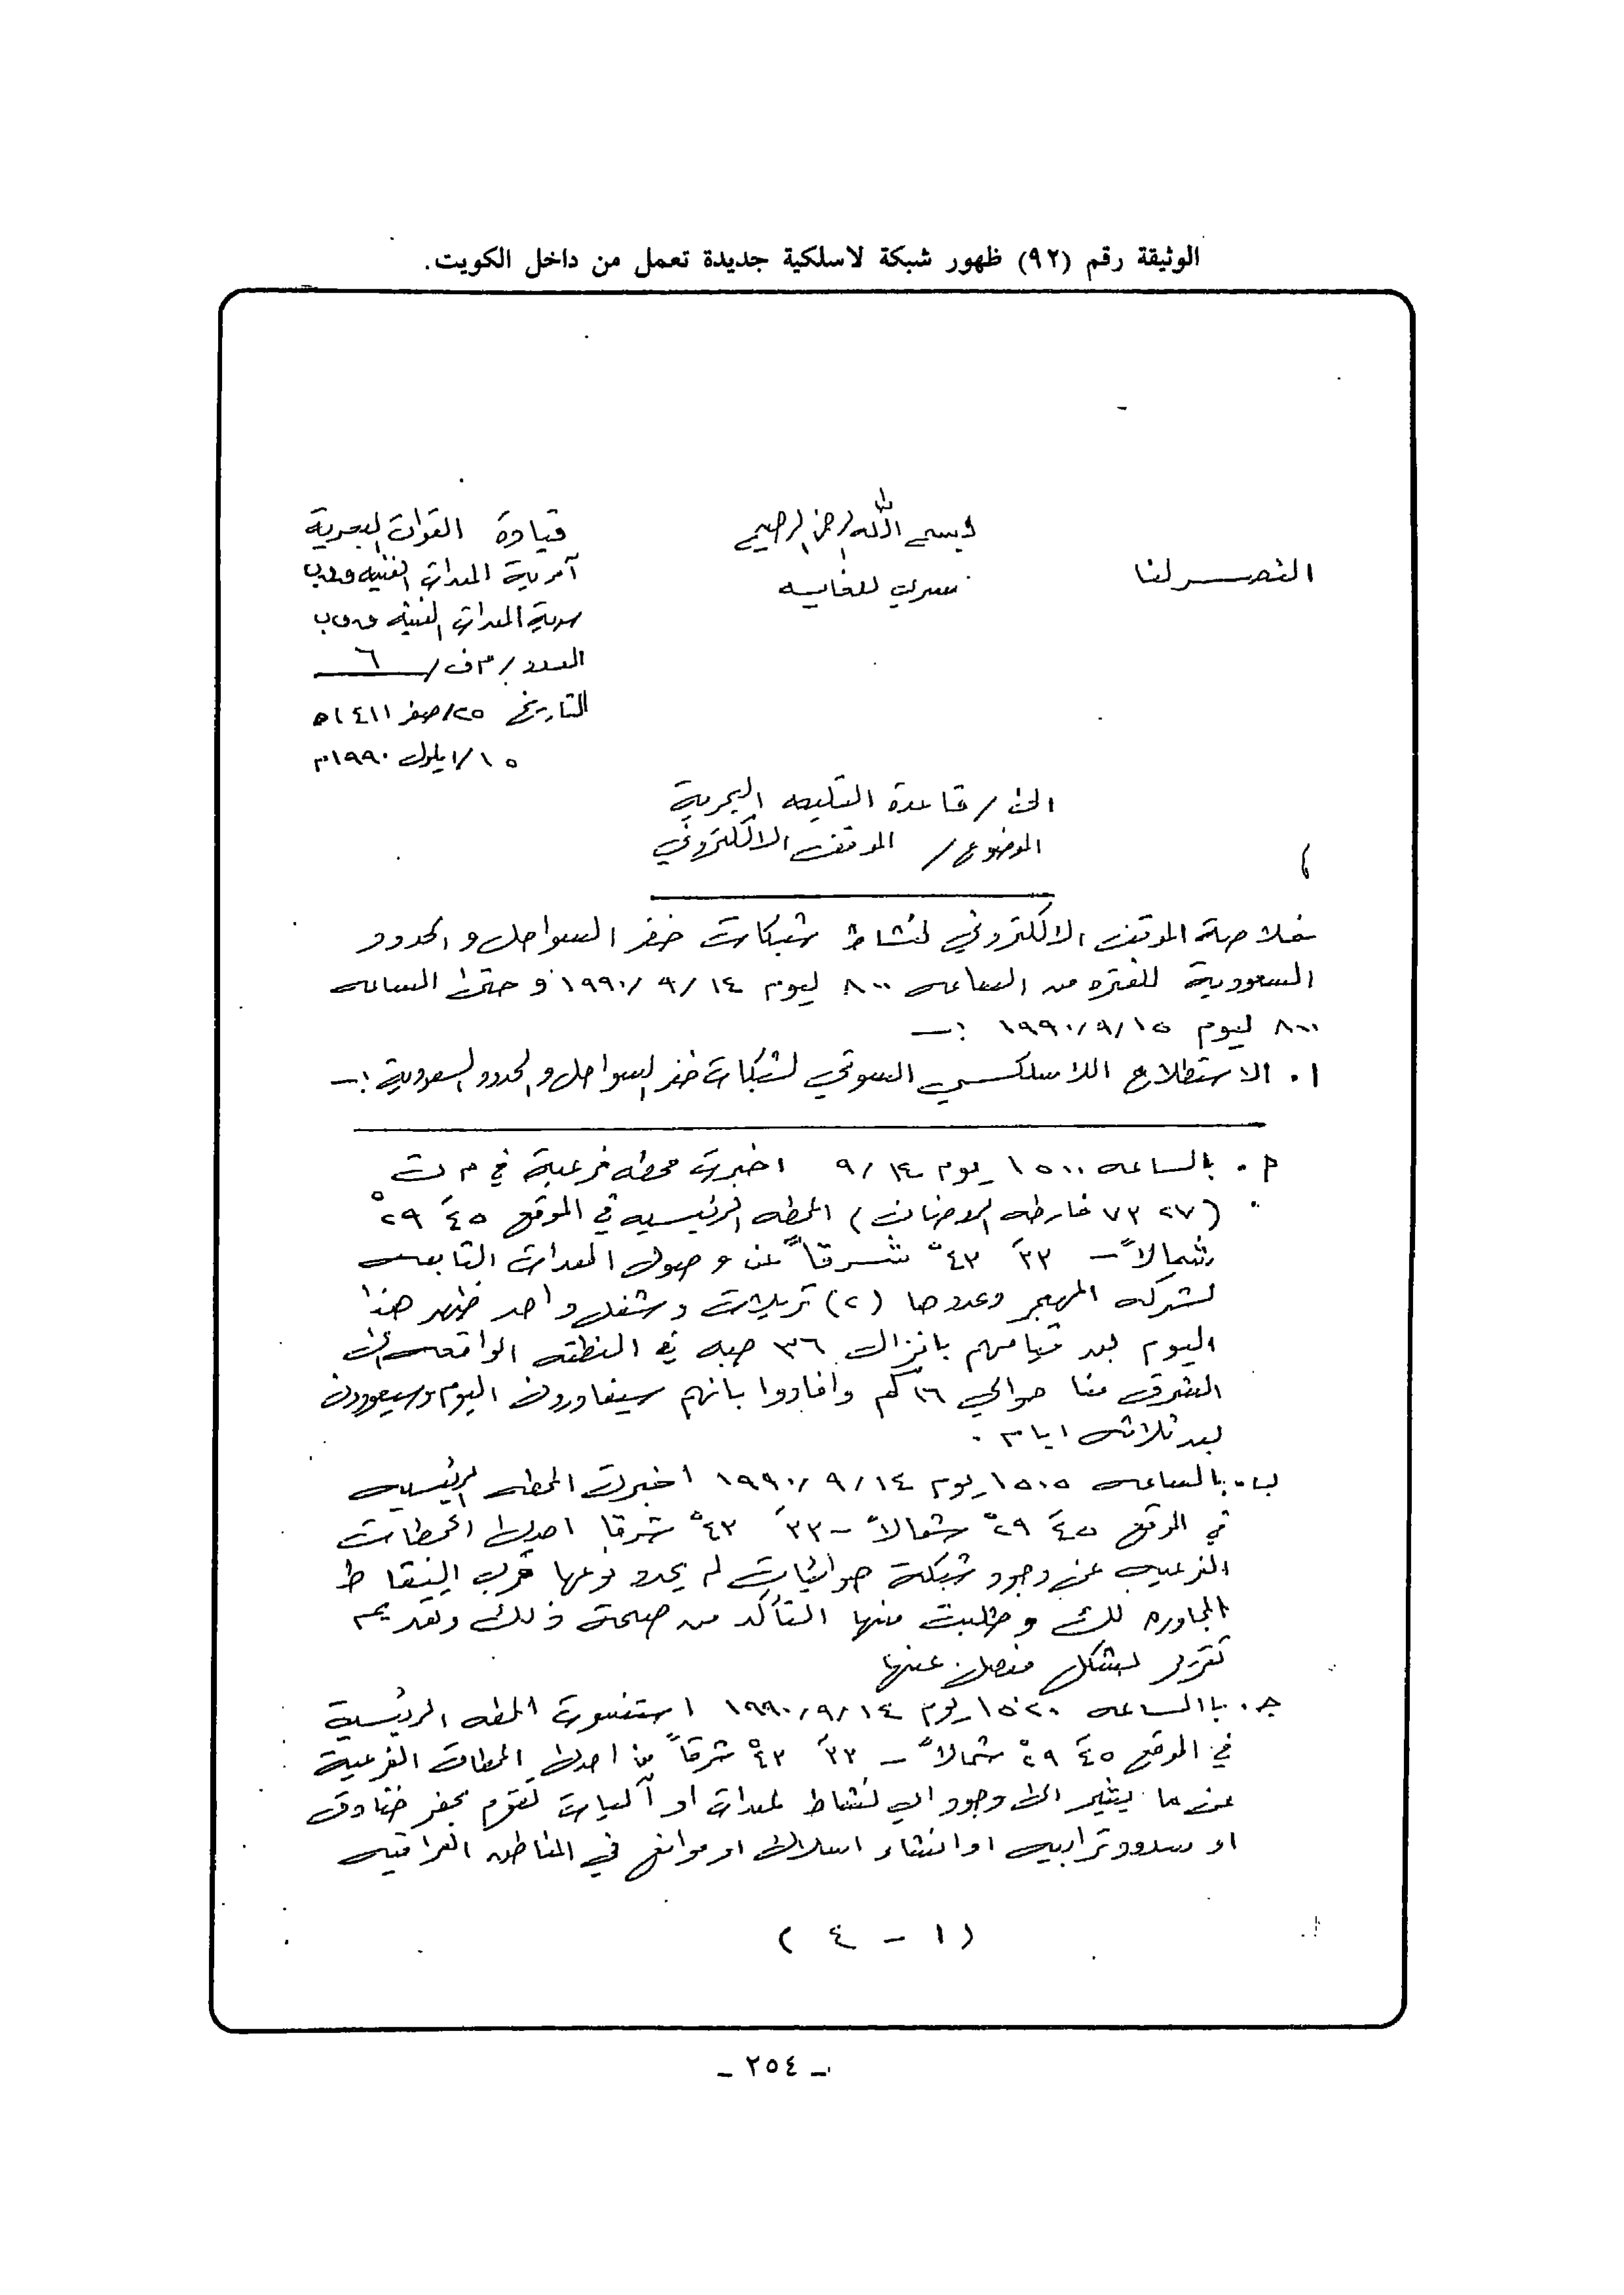 الوثيقة رقم (٩٢) ظهور شبكة لاسلكية جديدة تعمل من داخل الكويت.
بسم الله الرحمن الرحيم
سري للغاية
النصر لنا
قيادة القوات البحرية
آمرية المعدات الفنية
سرية المعدات الفنية
العدد / م ف / ٦
التاريخ ٢٥/صفر ١٤١١ه
١٥/ايلول ١٩٩٠م
الى / قاعدة القليعه البحرية
الموضوع / الموقف الالكتروني
خلاصة الموقف الالكتروني لنشاط شبكات خفر السواحل والحدود
السعودية للفتره من الساعه ٨٠٠ ليوم ١٤/٩/١٩٩٠ و حتى الساعه
٨٠٠ ليوم ١٥/٩/١٩٩٠ :ـ
١. الاستطلاع اللاسلكي السوقي لشبكات خفر السواحل والحدود السعودية :ـ
أ. بالساعه ١٥٠٠ يوم ٩/١٤ اخبرت محطه فرعية في م ت
(٢٧ ٧٣ خارطه ) المحطه الرئيسيه في الموقع ٤٥َ ٢٩ْ
شمالاً – ٣٣َ ٤٣ْ شرقاً عن وصول المعدات التابعه
لشركه وعددها (٢) تريلات وشفل واحد ظهر هذا
اليوم بعد قيامهم بانزال ٣٦ صبه في المنطقه الواقعه الى
الشرق منا حوالي ١٦ كم وافادوا بانهم سيغادرون اليوم وسيعودون
بعد ثلاثه ايام .
ب. بالساعه ١٥٠٥ يوم ١٤/٩/١٩٩٠ اخبرت المحطه الرئيسيه
في الموقع ٤٥َ ٢٩ْ شمالاً – ٣٣َ ٤٣ْ شرقا احدى المحطات
الفرعيه عن وجود شبكة هوائيات لم يحدد نوعها قرب النقاط
المجاوره لك وطلبت منها التأكد من صحة ذلك وتقديم
تقرير بشكل مفصل عنها
ج. باالساعه ١٥٢٠ يوم ١٤/٩/١٩٩٠ استفسرت المحطه الرئيسية
في الموقع ٤٥َ ٢٩ْ شمالاً – ٣٣َ ٤٣ْ شرقاً من احدى المحطات الفرعية
عن ما يشير الى وجود اي نشاط لمعدات او آليات تقوم بحفر خنادق
او سدود ترابيه او انشاء اسلاك او موانع في المناطق العراقيه
(١ - ٤)
ـ ٢٥٤ ـ